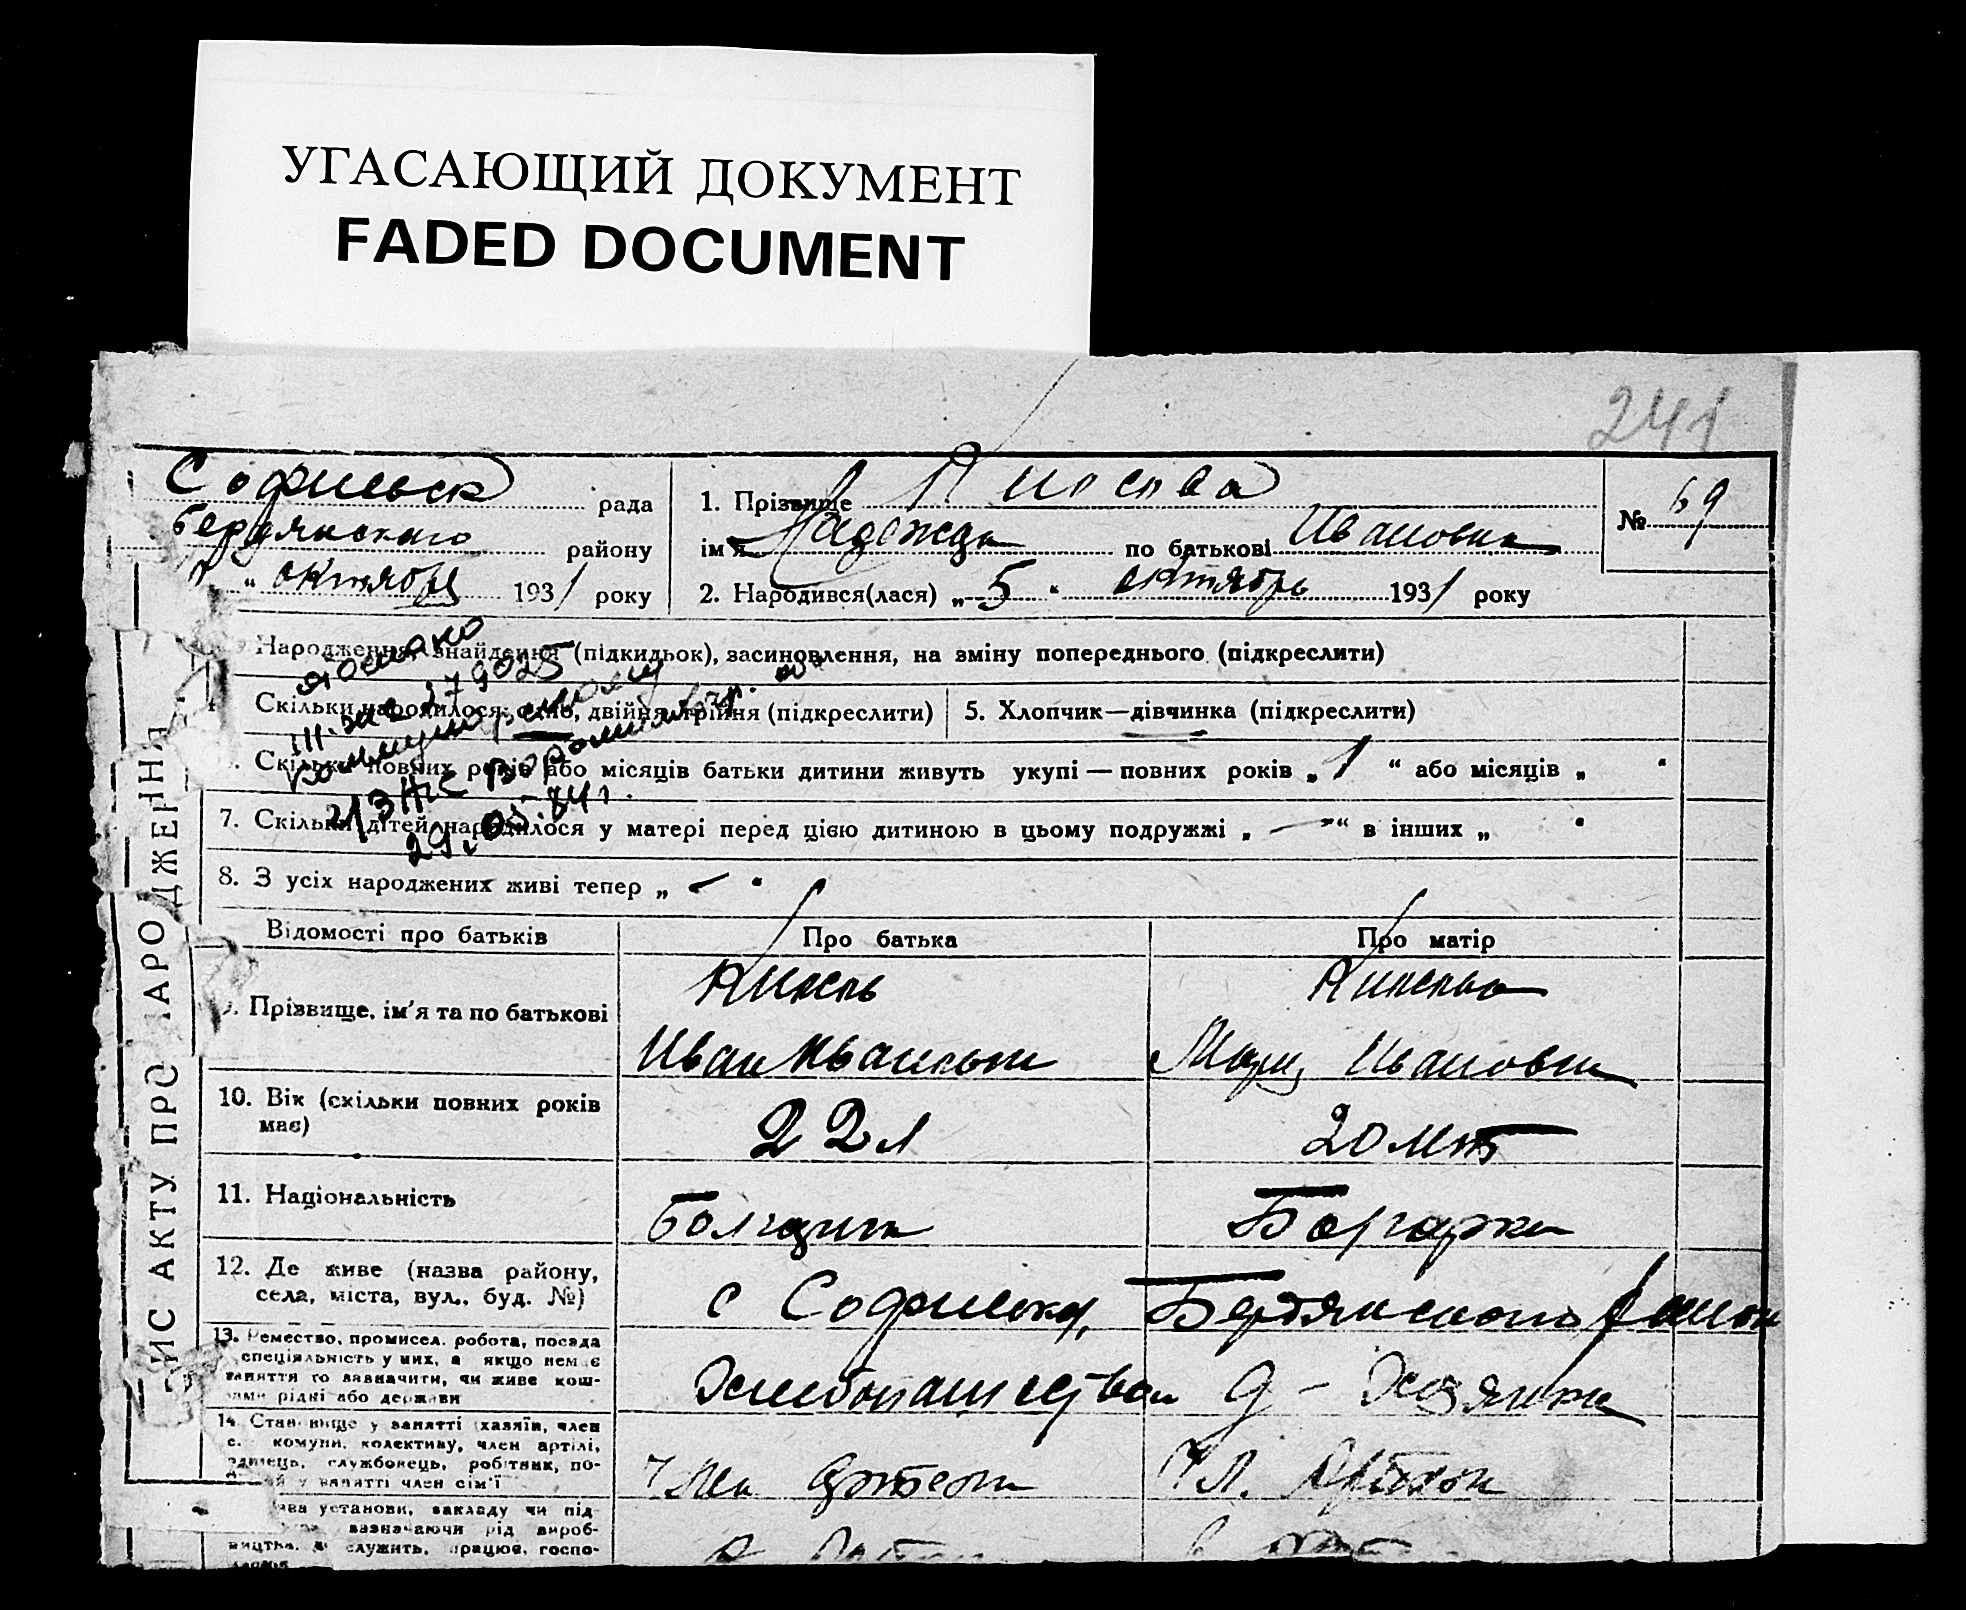 УГАСАЮЩИЙ ДОКУМЕНТ
FADED DOCUMENT
241
Софиевск рада
Бердянскаго району
" октября 1931 року
1. Прізвище
ім'я Надежда по батькові Ивановна
№ 69
2. Народився(лася) „5" октябрь 1931 року
Народження, знайдення (підкидьок), засиновлення, на зміну попереднього (підкреслити)
Скільки народилося: одно, двійня, трійня (підкреслити)
5. Хлопчик—дівчинка (підкреслити)
Скільки повних років або місяців батьки дитини живуть укупі — повних років „1" або місяців „ "
7. Скільки дітей народилося у матері перед цією дитиною в цьому подружжі „ — " в інших „ "
8. З усіх народжених живі тепер „ — "
29.05.84 г.
ИС АКТУ ПРО НАРОДЖЕННЯ
Відомості про батьків Про батька Про матір
Прізвище, ім'я та по батькові
Иван Иванович
Мария Ивановна
10. Вік (скільки повних років має)
22 л
20 лет
11. Національність
Болгарин
Болгарка
12. Де живе (назва району,
села, міста, вул., буд. №)
с Софиевка, Бердянского района
13. Ремество, промисел, робота, посада
спеціяльність у них, а якщо немає
заняття то зазначити, чи живе кош-
тами рідні або держави
Хлебопашество д - Хозяйка
14. Становище у занятті (хазяїн, член
с. комуни, колективу, член артілі,
одинець, службовець, робітник, по-
й у занятті член сім'ї
Член артели
Чл. Артели
ва установи, закладу чи під-
зазначаючи рід вироб-
ництва, де служить, працює, госпо-